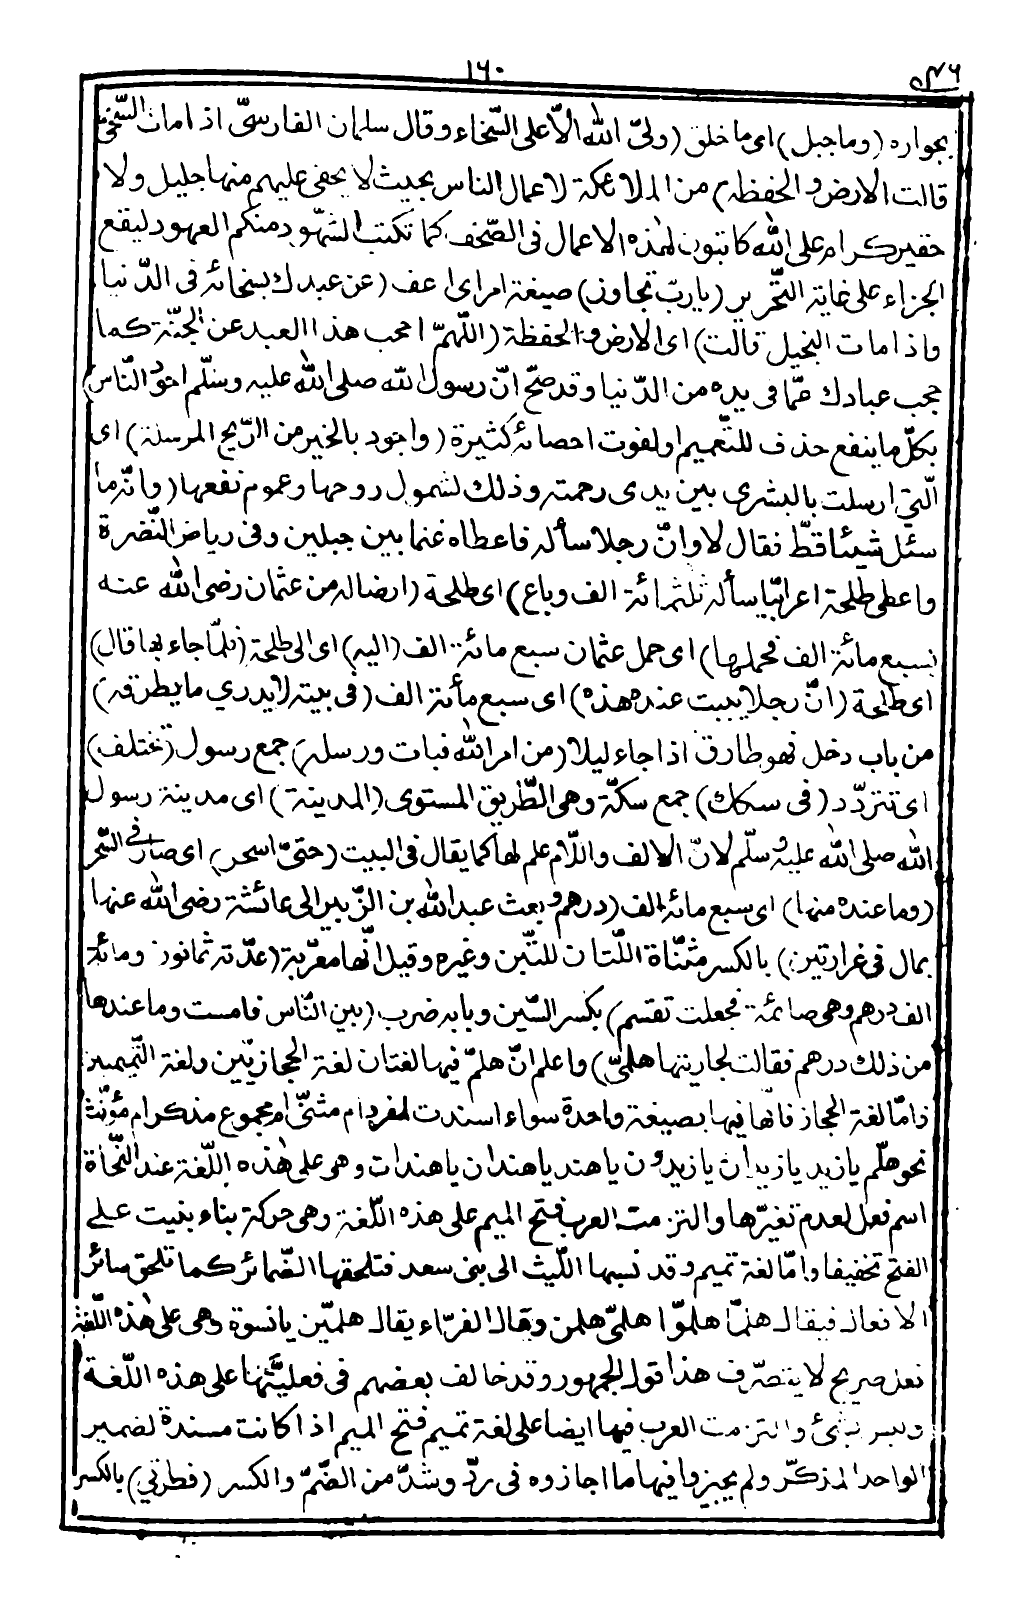 ١٦٠
بجواره (وما جبل) اى ما خلق (ولىّ الله الّا على السّخاء وقال سلمان الفارسىّ اذا مات السّخىّ
قالت الارض والحفظة) من الملائكة لاعمال الناس بحيث لا يخفى عليهم منها جليل ولا
حقير كرام على الله كاتبون لهذه الاعمال فى الصّحف كما تكتب الشهود منكم العهود ليقع
الجزاء على غاية التّحرير (يا ربّ تجاوز) صيغة امر اى اعف (عن عبدك بسخائه فى الدّنيا
واذا مات البخيل قالت) اى الارض والحفظة (اللّهمّ احجب هذا العبد عن الجنّة كما
حجب عبادك عمّا فى يده من الدّنيا وقد صحّ انّ رسول الله صلى الله عليه وسلّم اجود النّاس)
بكلّ ما ينفع حذف للتّعميم او لفوت احصائه كثيرة (واجود بالخير من الرّيح المرسلة) اى
الّتى ارسلت بالبشرى بين يدى رحمته وذلك لشمول روحها وعموم نفعها (وانّه ما
سئل شيئا قطّ فقال لا وانّ رجلا سأله فاعطاه غنما بين جبلين وفى رياض النّضرة
واعطى طلحة اعرابيّا سأله ثلثمائة الف وباع) اى طلحة (ارضا له من عثمان رضى الله عنه
بسبع مائة الف فحملها) اى حمل عثمان سبع مائة الف (اليه) اى الى طلحة (فلمّا جاء بها قال)
اى طلحة (انّ رجلا يبيت عنده هذه) اى سبع مأئة الف (فى بيته لا يدري ما يطرقه)
من باب دخل فهو طارق اذا جاء ليلا (من امر الله فبات ورسله) جمع رسول (تختلف)
اى تتردّد (فى سكاك) جمع سكّة وهى الطّريق المستوى (المدينة) اى مدينة رسول
الله صلى الله عليه وسلّم لانّ الالف واللّام علم لها كما يقال فى البيت (حتىّ اسحر) اى صار فى السّحر
(وما عنده منها) اى سبع مائة الف (درهم وبعث عبد الله بن الزّبير الى عائشة رضى الله عنها
بمال فى غرارتين) بالكسر مثنّاة اللّتان للتّبن وغيره وقيل انّها معرّبة (عدّته ثمانون ومائة
الف درهم وهى صائمة فجعلت تقسم) بكسر السّين وبابه ضرب (بين النّاس فامست وما عندها
من ذلك درهم فقالت لجاريتها هلمّى) واعلم انّ هلمّ فيها لغتان لغة الحجازيّين ولغة التّميميين
فامّا لغة الحجاز فانّها فيها بصيغة واحدة سواء اسندت لمفرد ام مثنّى ام مجموع مذكر ام مؤنّث
نحو هلّم يا زيد يا زيدان يا زيدون يا هند يا هندان يا هندات وهو على هذه اللّغة عند النّحاة
اسم فعل لعدم تغيّرها والتزمت العرب فتح الميم على هذه اللّغة وهى حركة بناء بنيت على
الفتح تخفيفا وامّا لغة تميم وقد نسبها اللّيث الى بنى سعد فتلحقها الضّمائر كما تلحق سائر
الافعال فيقال هلمّا هلموّا هلمىّ هلمن وقال الفرّاء يقال هلمّين يا نسوة وهى على هذه اللّغة
فعل صريح لا يتصرّف هذا قول الجمهور وقد خالف بعضهم فى فعليّتها على هذه اللّغة
وليس بشئ والتزمت العرب فيها ايضا على لغة تميم فتح الميم اذا كانت مسندة لضمير
الواحد المذكّر ولم يجيزوا فيها ما اجازوه فى ردّ وشدّ من الضّمّ والكسر (فطرتي) بالكسر